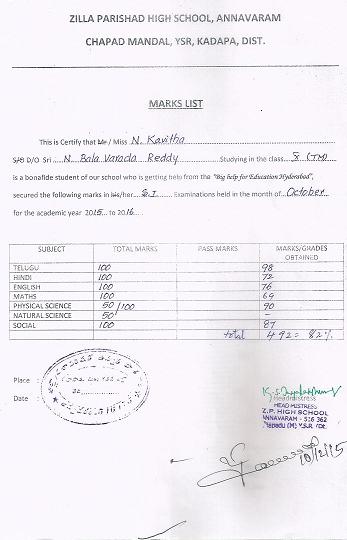 ZILLA PARISHAD HIGH SCHOOL, ANNAVARAM
CHAPAD MANDAL, YSR, KADAPA, DIST.
MARKS LIST
This is Certify that Mr / Miss N. Kavitha
S/o D/O Sri N. Bala Varada Reddy Studying in the class 8 (TM)
is a bonafide student of our school who is getting help from the "Big help for Education Hyderabad",
secured the following marks in his/her S.I Examinations held in the month of October
for the academic year 2015 to 2016
SUBJECT TOTAL MARKS PASS MARKS MARKS/GRADES OBTAINED
TELUGU 100 98
HINDI 100 72
ENGLISH 100 76
MATHS 100 69
PHYSICAL SCIENCE 50/100 90
NATURAL SCIENCE 50 –
SOCIAL 100 87
total 492 = 82%
Place :
Date :
Headmistress
HEAD MISTRESS
Z.P. HIGH SCHOOL
ANNAVARAM - 516 362
(M) Y.S.R.
10/12/15